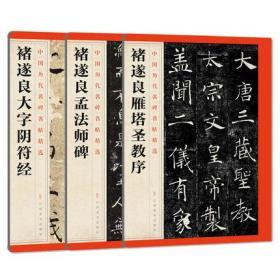 中国历代名碑名帖精选
褚遂良大字阴符经
中国历代名碑名帖精选
褚遂良孟法师碑
中国历代名碑名帖精选
褚遂良雁塔圣教序
大唐三藏聖教
太宗文皇帝製
蓋聞二儀有